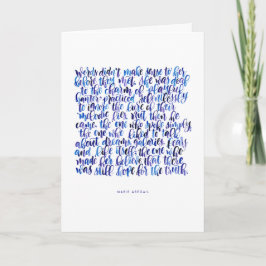 words didn't make sense to her
before they met. she was deaf
to the charm of playful
banter. practiced relentlessly
to ignore the lure of their
melodic lies. and then he
came. the one who spoke simply.
the one who liked to talk
about dreams, galaxies, fears
and life itself. the one who
made her believe that there
was still hope for the truth.